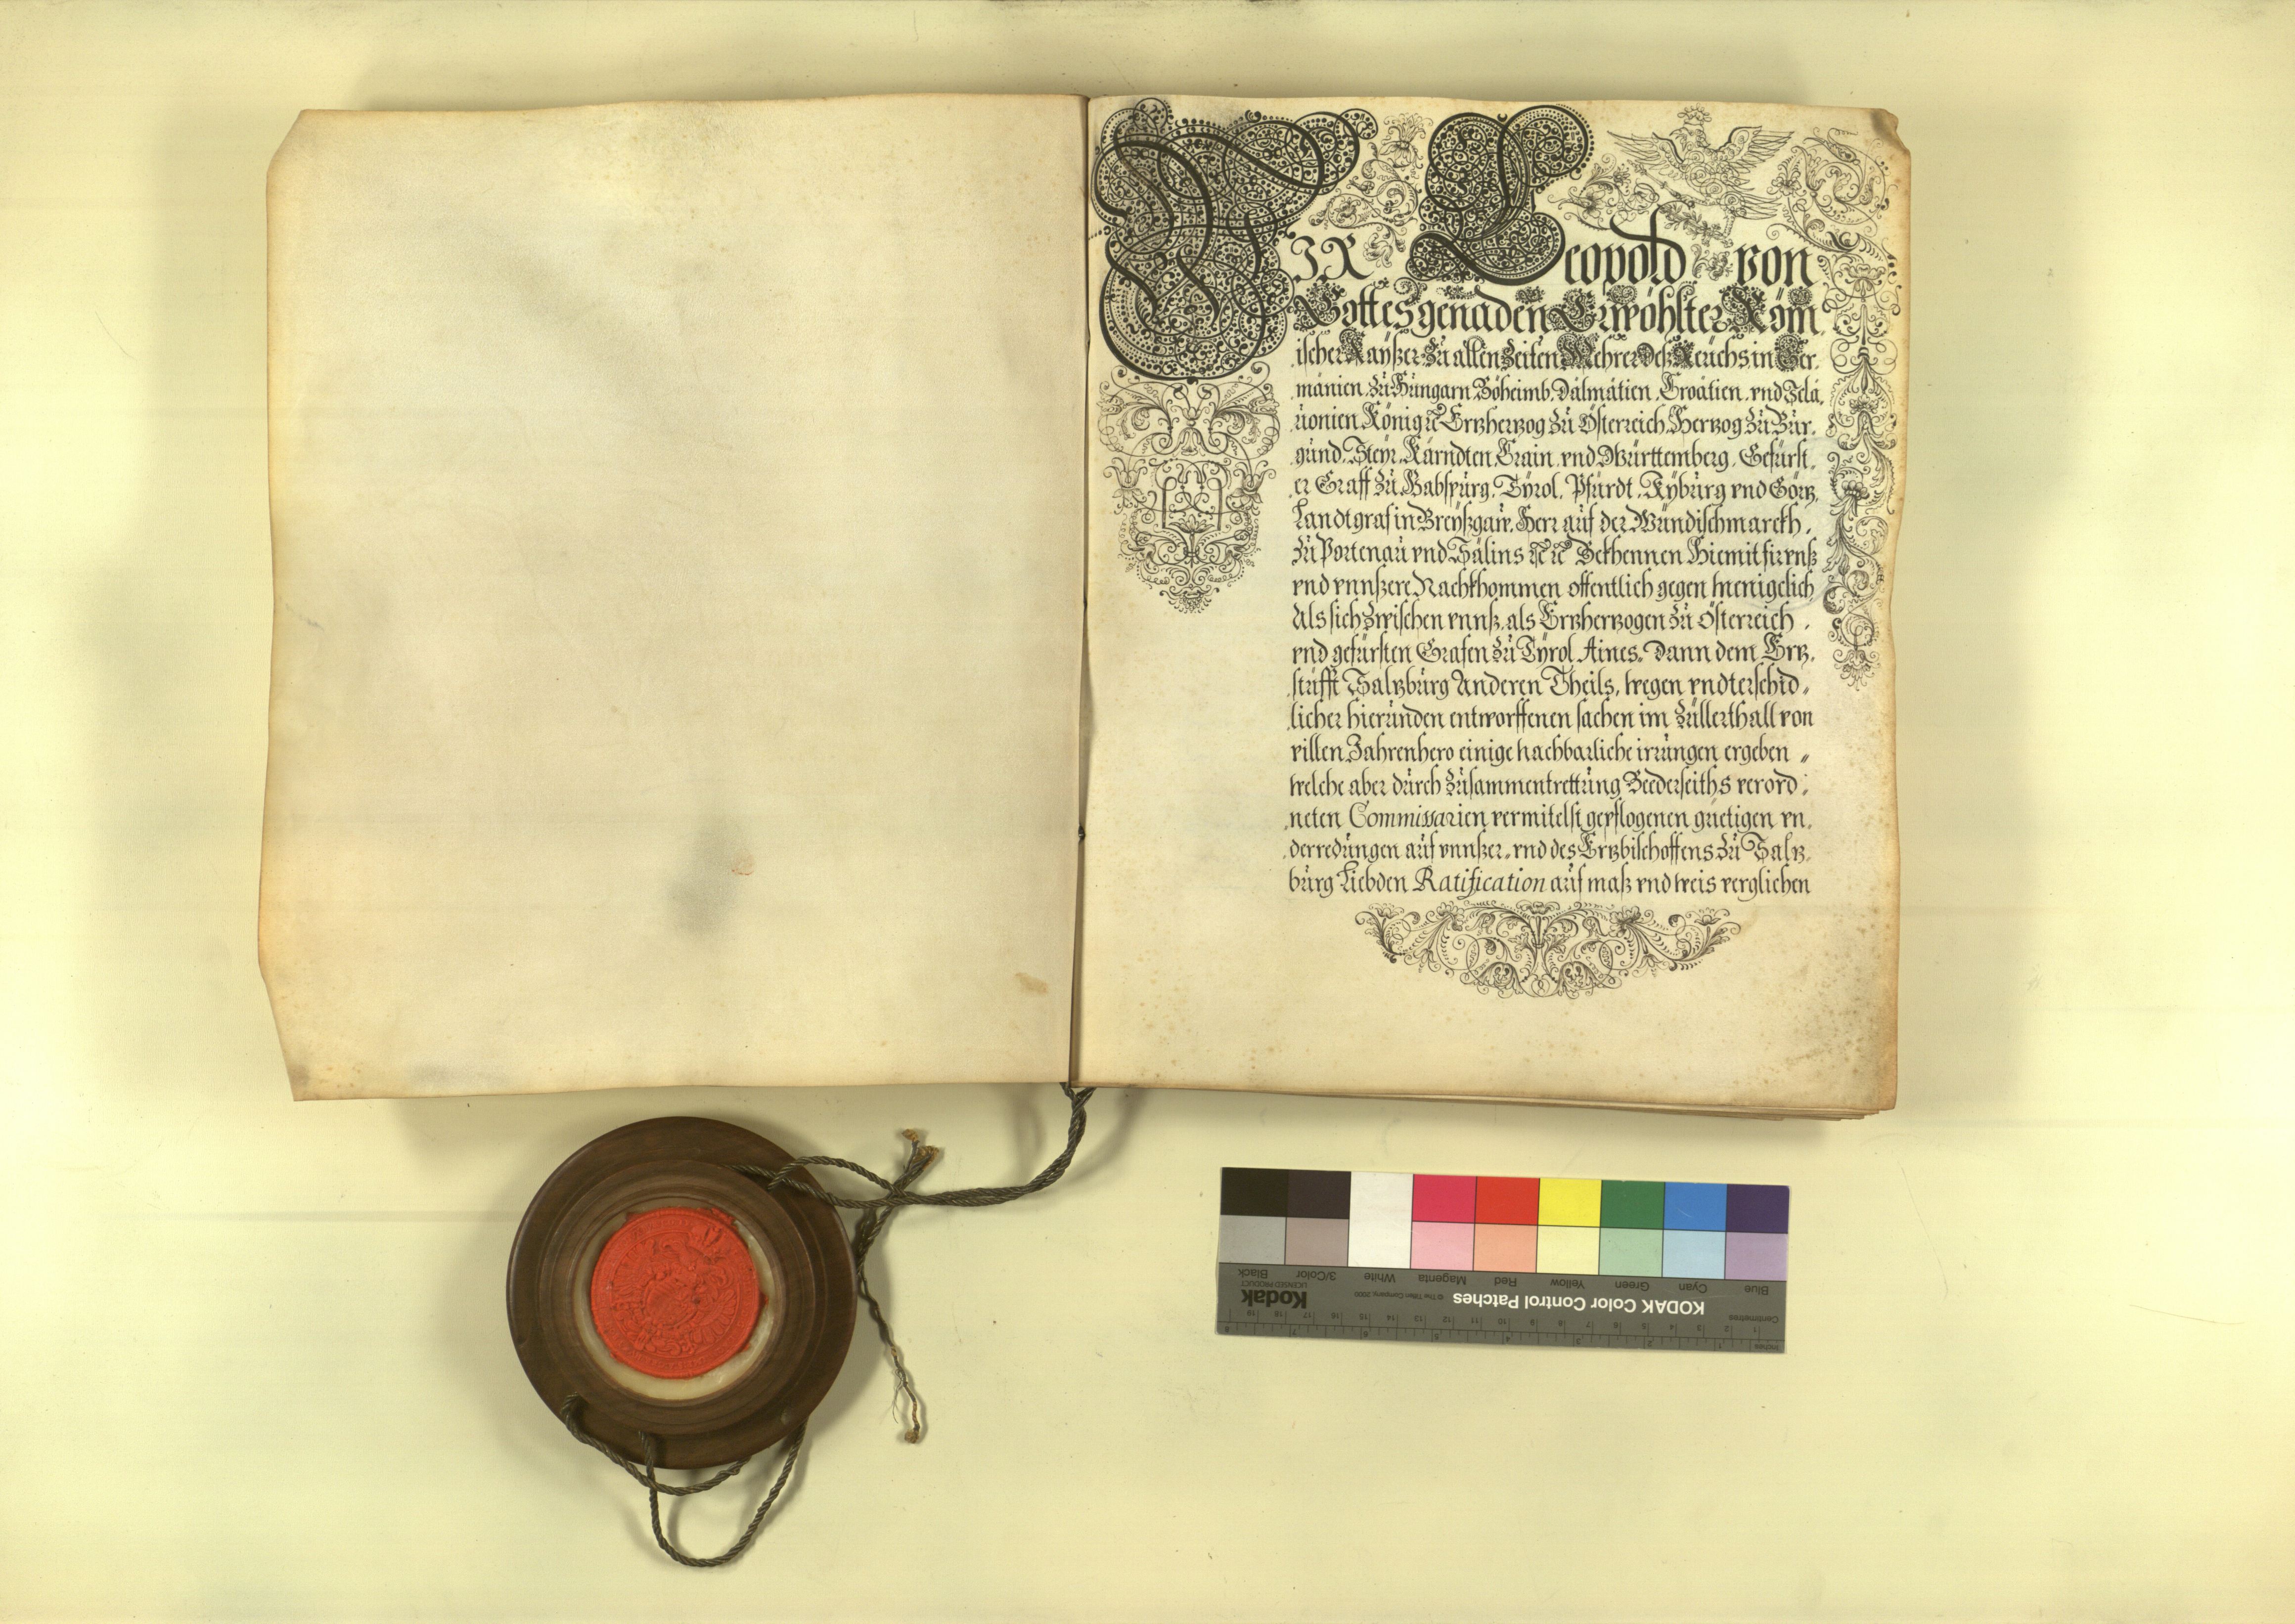 WIR Leopold von
Gottes genaden Erwöhlter Röm
ischer Kaÿßer Zu allen Zeiten Mehrer deß Reichs in Ger.
manien, Zu Hungarn, Böheimb, Dalmatien, Croatien, vnd Scla,
uonien König ꝛc Ertzhertzog Zu Österreich, Hertzog Zu Bur.
gund, Steyr, Kärndten, Crain, vnd Württemberg, Gefürst,
er Graff Zu Habspurg, Tÿrol, Pfürdt, Kÿburg vnd Görtz,
Landtgraf in Breÿßgaw, Herr auf der Windischmarckh,
Zu Portenau vnd Salins ꝛc ꝛc Bekhennen Hiemit fir vnß
vnd vnnßere Nachkhommen offentlich gegen menigelich,
Als sich Zwischen vnnß, als Ertzhertzogen Zu Österreich,
vnd gefürsten Grafen Zu Tÿrol Aines, Dann dem Ertz,
stüfft Saltzburg Anderen Theils, wegen vndterschid,,
licher hierunden entworffenen sachen im Züllerthall von
villen Jahrenhero einige nachbarliche irrungen ergeben,,
welche aber durch Zusammentrettung Beederseiths verord,
neten Commissarien vermitelst gepflogenen güetigen vn,
derredungen auf vnnßer, vnd des Ertzbischoffens Zu Saltz,
burg Liebden Ratification auf maß vnd weis verglichen
Blue Cyan Green Yellow Red Magenta White 3/Color Black
KODAK Color Control Patches
© The Tiffen Company, 2000
Kodak
LICENSED PRODUCT
Centimetres
1 2 3 4 5 6 7 8 9 10 11 12 13 14 15 16 17 18 19
Inches